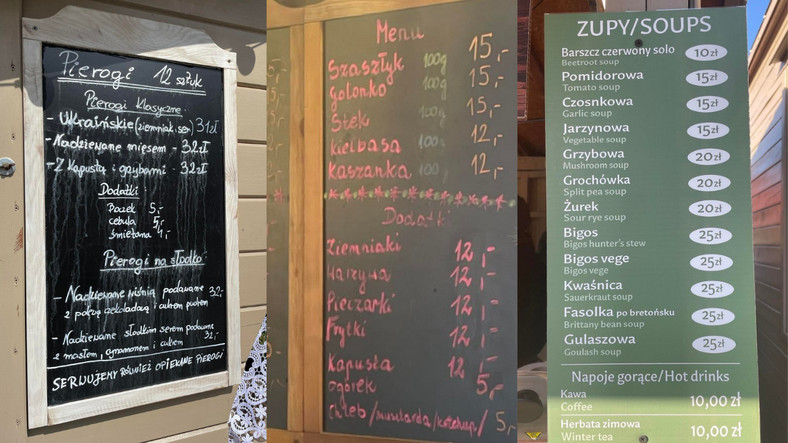 Pierogi 12 sztuk
Pierogi klasyczne:
- Ukraińskie (ziemniak, ser) 31 zł
- Nadziewane mięsem - 32 zł
- Z kapustą i grzybami - 32 zł
Dodatki:
Boczek 5,-
cebula 5,-
śmietana 4,-
Pierogi na słodko:
- Nadziewane wiśnią podawane 32,-
z polewą czekoladową i cukrem pudrem
- Nadziewane słodkim serem podawane
z masłem, cynamonem i cukrem 32,-
SERWUJEMY RÓWNIEŻ OPIEKANE PIEROGI
Menu
Szaszłyk 100g 15,-
golonko 100g 15,-
Stek 100g 15,-
kiełbasa 100g 12,-
kaszanka 100g 12,-
Dodatki
Ziemniaki 12,-
Warzywa 12,-
Pieczarki 12,-
Frytki 12,-
Kapusta 12,-
ogórek 5,-
chleb/musztarda/ketchup/ 5,-
ZUPY/SOUPS
Barszcz czerwony solo 10zł
Beetroot soup
Pomidorowa 15zł
Tomato soup
Czosnkowa 15zł
Garlic soup
Jarzynowa 15zł
Vegetable soup
Grzybowa 20zł
Mushroom soup
Grochówka 20zł
Split pea soup
Żurek 20zł
Sour rye soup
Bigos 25zł
Bigos hunter's stew
Bigos vege 25zł
Bigos vege
Kwaśnica 25zł
Sauerkraut soup
Fasolka po bretońsku 25zł
Brittany bean soup
Gulaszowa 25zł
Goulash soup
Napoje gorące/Hot drinks
Kawa 10,00 zł
Coffee
Herbata zimowa 10,00 zł
Winter tea